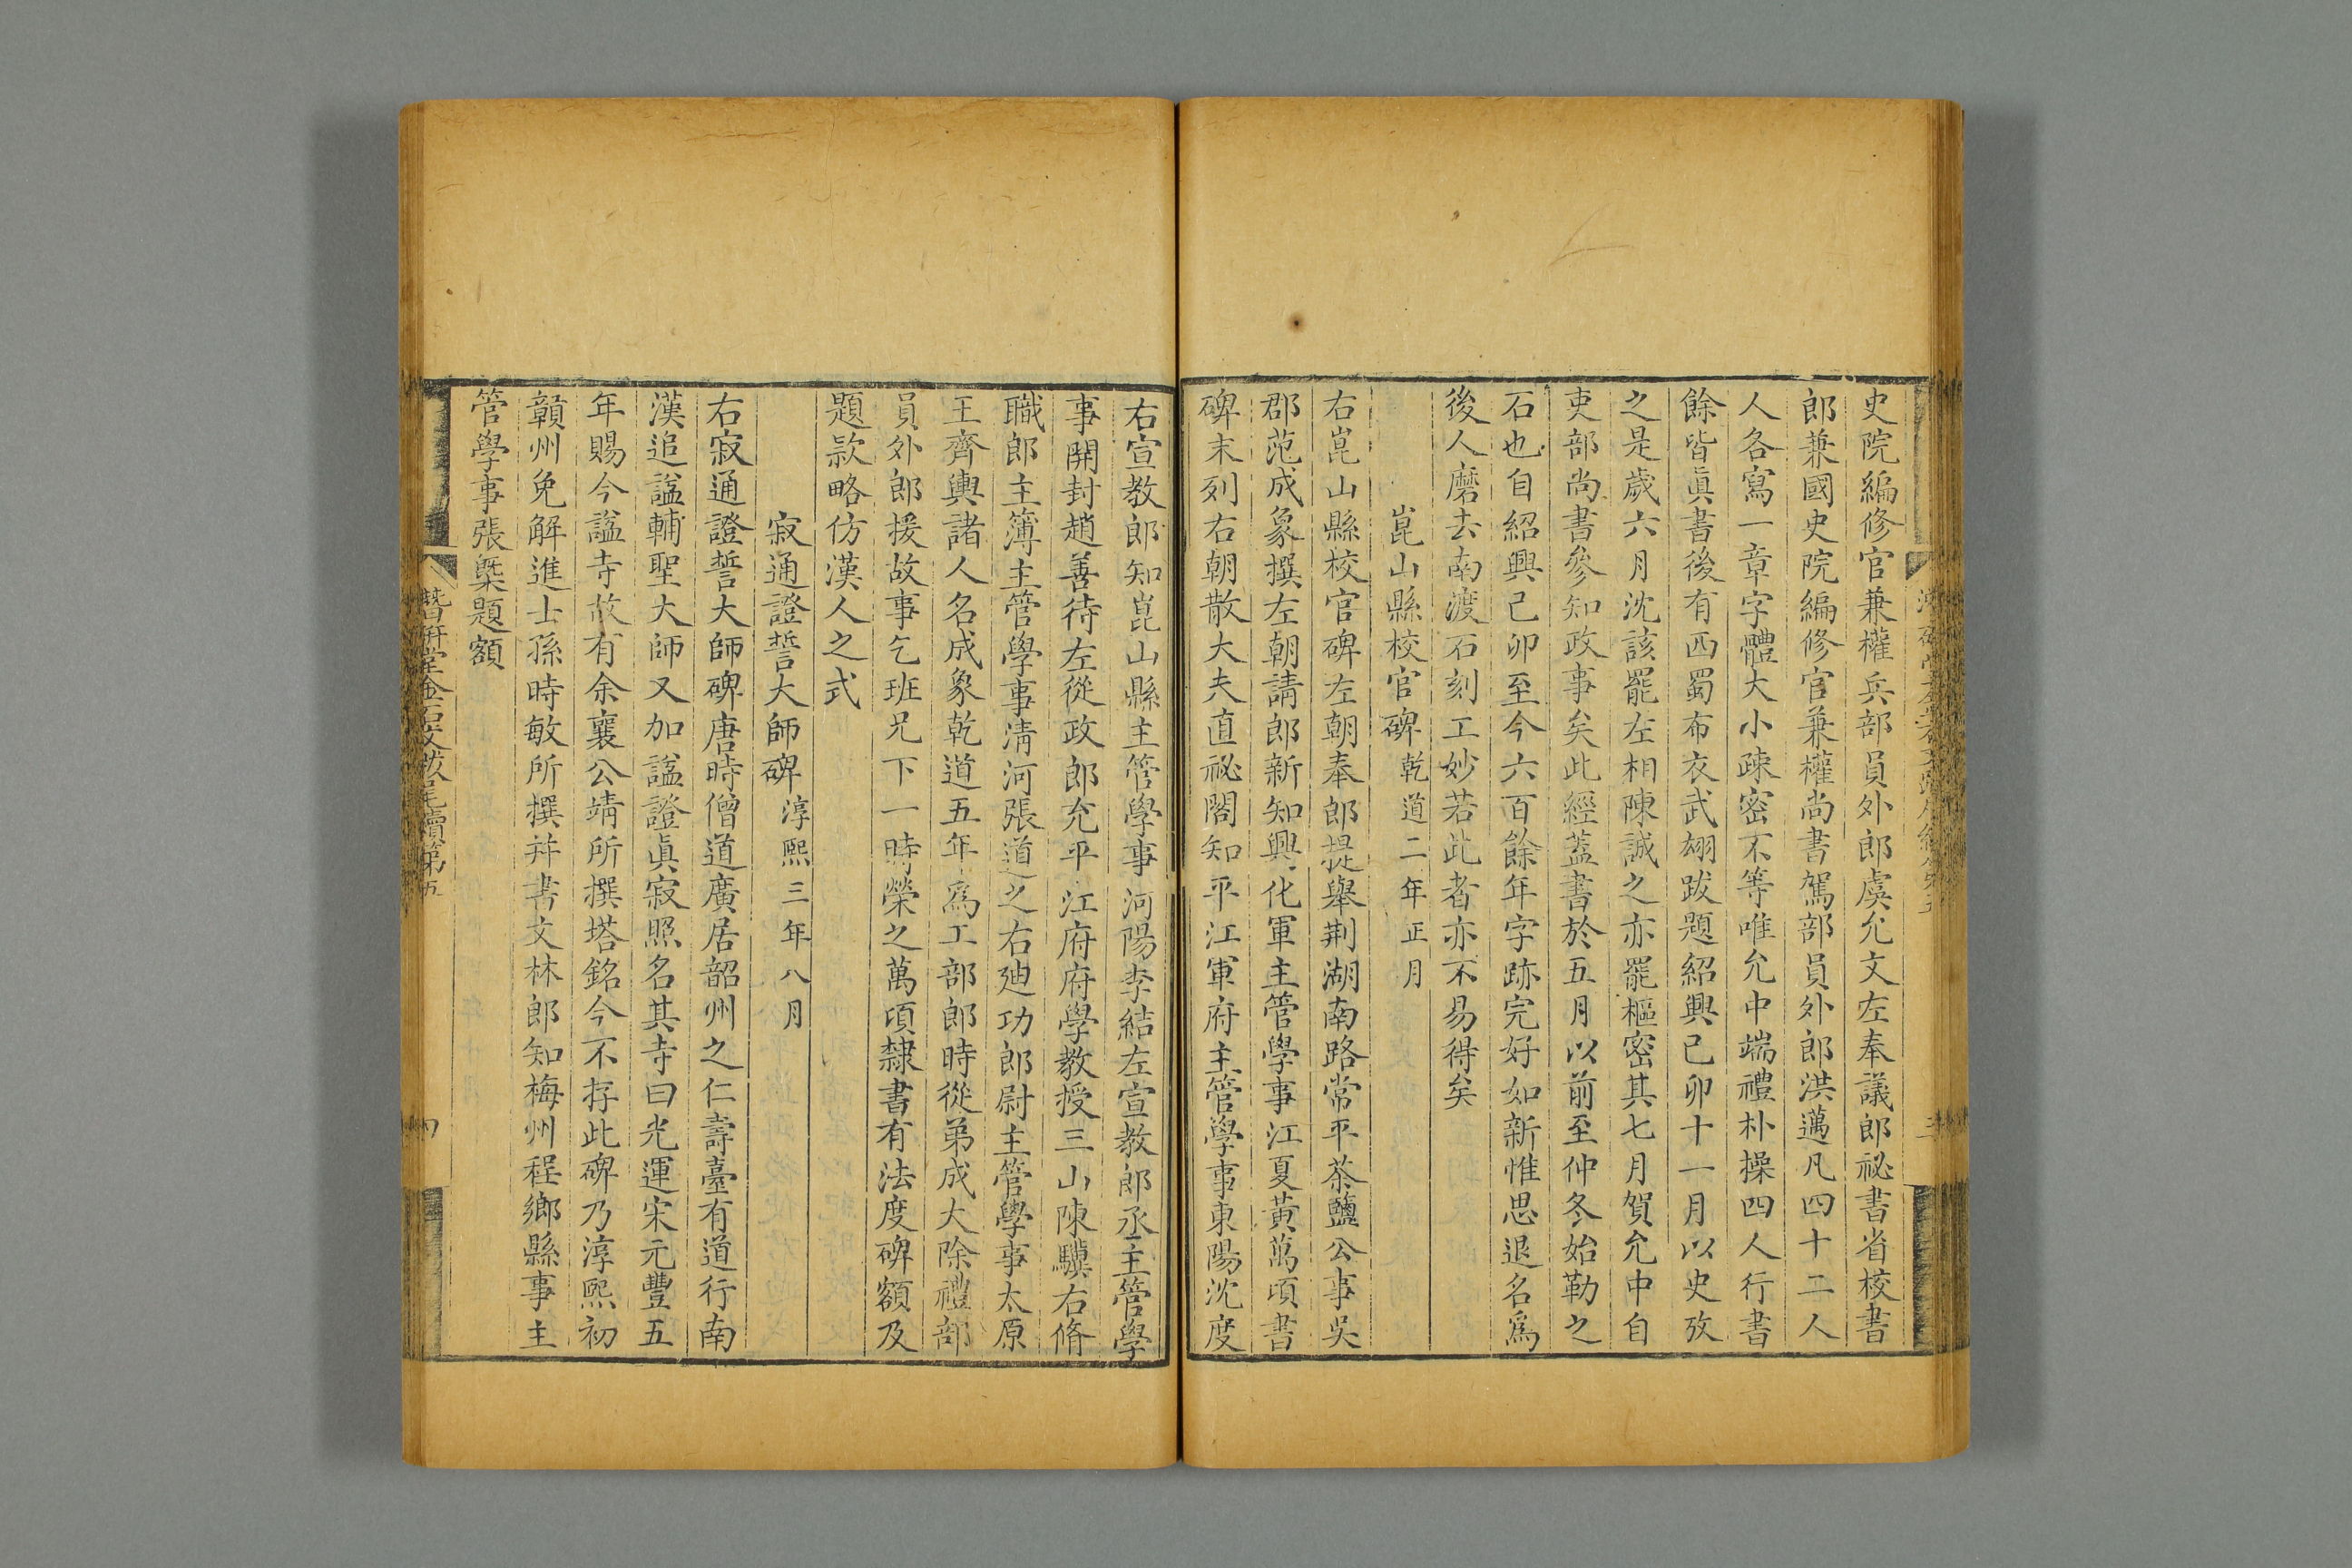 史院編修官兼權兵部員外郎虞允文左奉議郎祕書省校書
郎兼國史院編修官兼權尚書駕部員外郎洪邁凡四十二人
人各寫一章字體大小疎密不等唯允中端禮朴操四人行書
餘皆眞書後有西蜀布衣武翃跋題紹興己卯十一月以史攷
之是歲六月沈該罷左相陳誠之亦罷樞密其七月賀允中自
吏部尚書參知政事矣此經蓋書於五月以前至仲冬始勒之
石也自紹興己卯至今六百餘年字跡完好如新惟思退名爲
後人磨去南渡石刻工妙若此者亦不易得矣
崑山縣校官碑乾道二年正月
右崑山縣校官碑左朝奉郎提舉荆湖南路常平茶鹽公事吳
郡范成象撰左朝請郎新知興化軍主管學事江夏黃萬頃書
碑末列右朝散大夫直祕閣知平江軍府主管學事東陽沈度
右宣教郎知崑山縣主管學事河陽李結左宣教郎丞主管學
事開封趙善待左從政郎充平江府府學教授三山陳驥右脩
職郎主簿主管學事淸河張道之右廸功郎尉主管學事太原
王齊輿諸人名成象乾道五年爲工部郎時從弟成大除禮部
員外郎援故事乞班兄下一時榮之萬頃隸書有法度碑額及
題款略仿漢人之式
寂通證誓大師碑淳熙三年八月
右寂通證誓大師碑唐時僧道廣居韶州之仁壽臺有道行南
漢追諡輔聖大師又加諡證眞寂照名其寺曰光運宋元豐五
年賜今諡寺故有余襄公靖所撰塔銘今不存此碑乃淳熙初
贛州免解進士孫時敏所撰并書文林郎知梅州程鄉縣事主
管學事張槩題額
潛研堂金石文跋尾續第五